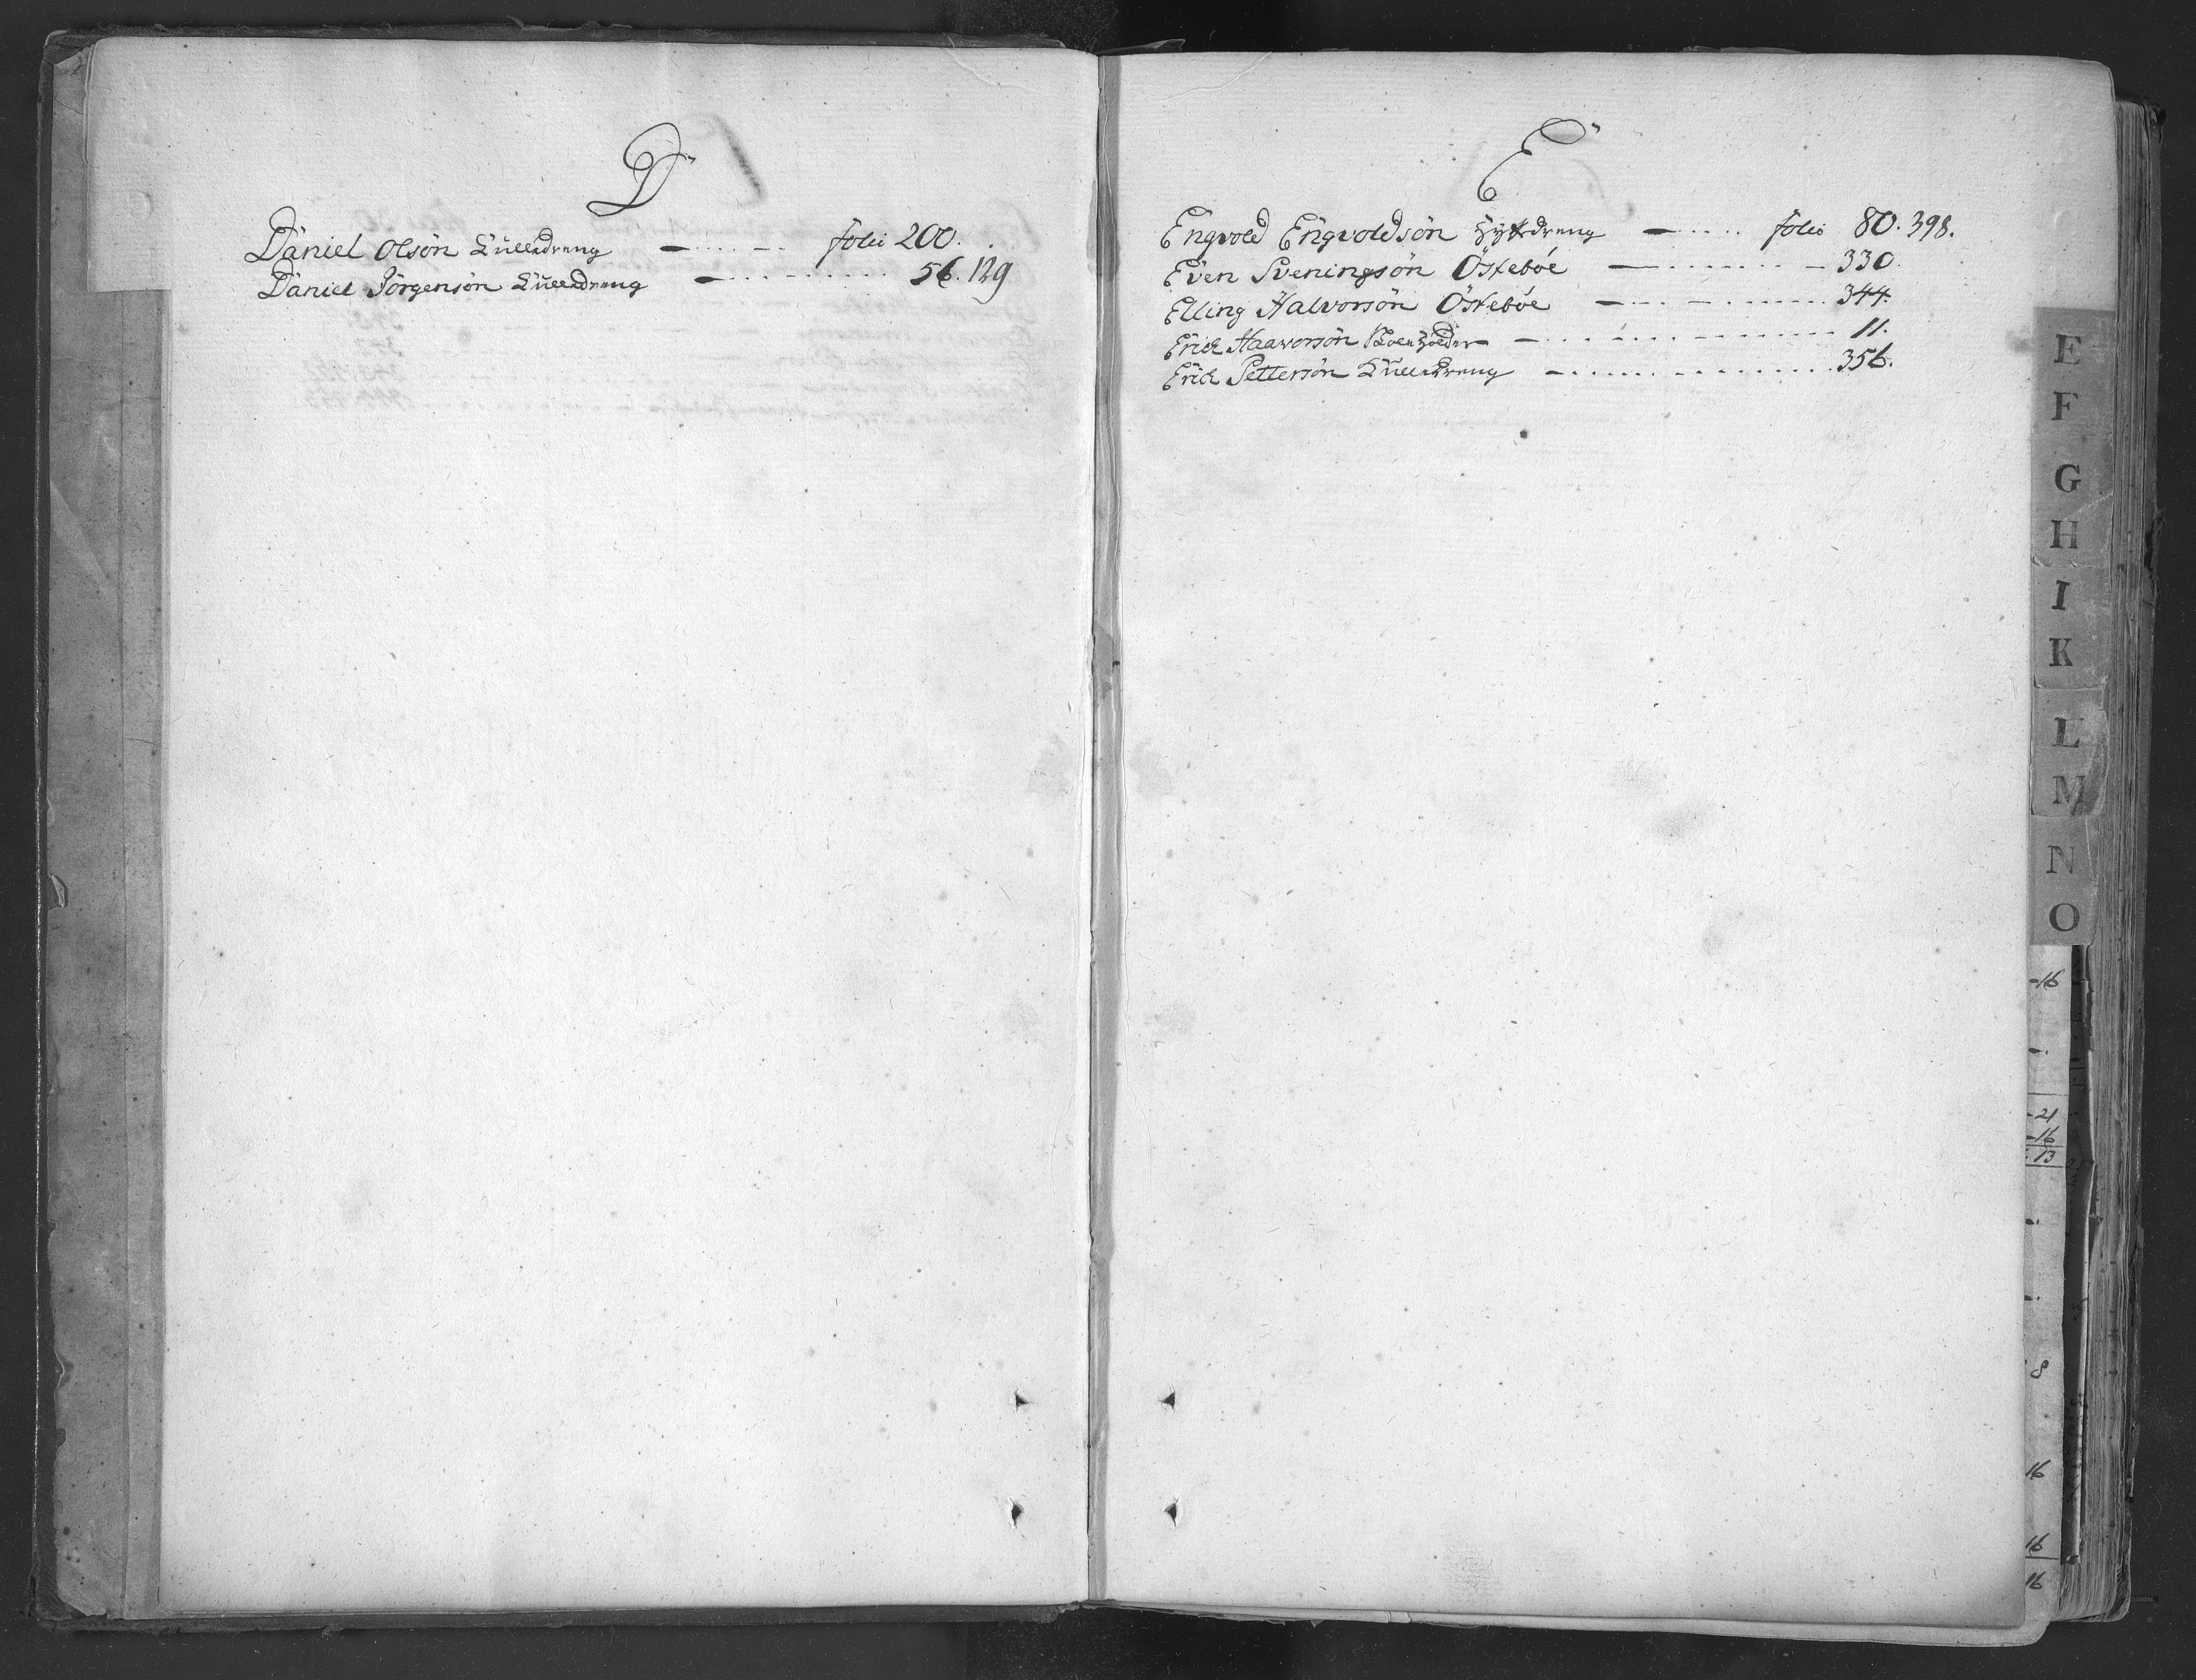 D
Daniel Olsön Kulldreng — folii 200.
Daniel Jörgensön Kulldreng — 56. 129
E
Engvold Engvoldsön Hyttedreng — folii 80. 398.
Even Sveningsön Östeböe — 330.
Elling Halvorsön Östeböe — 344.
Erich Haavorsön — 11.
Erich Pettersön Kulldreng — 356.
E
F
G
H
I
K
L
M
N
O
-16
-21
-16
13
8
16
16
16